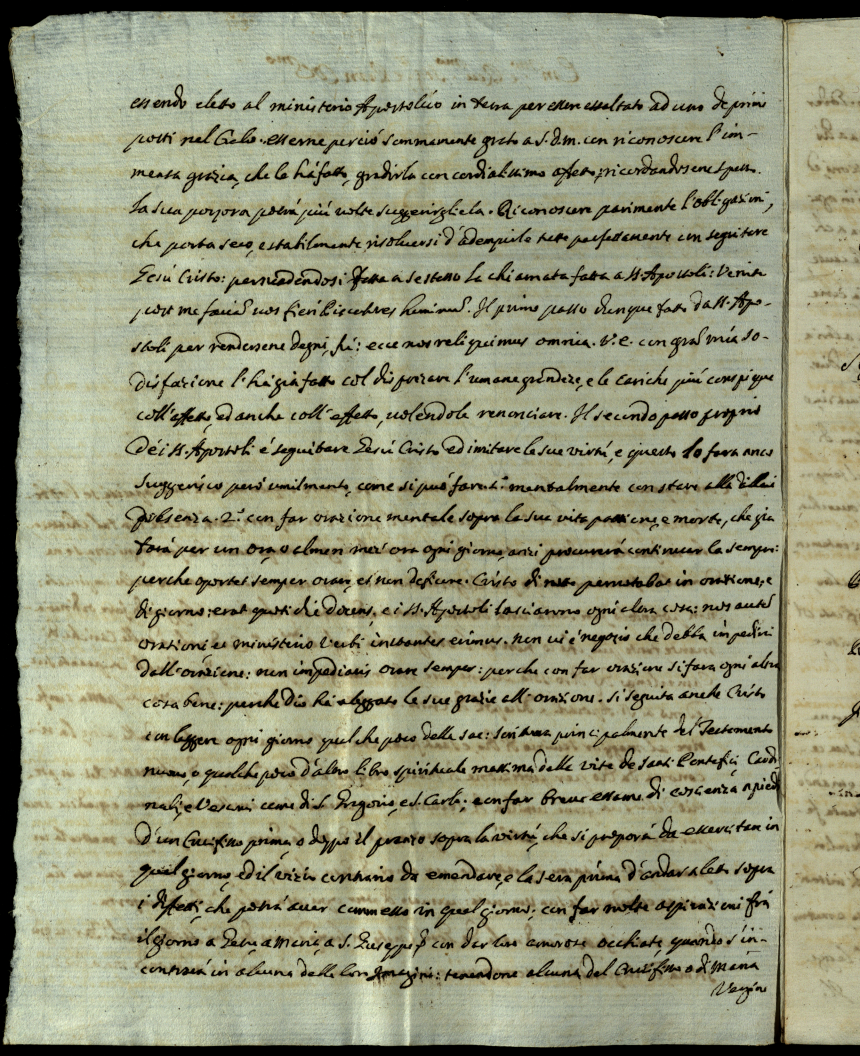 essendo eletto al ministerio Apostolico in terra per essere essaltato ad uno de primi
posti nel Cielo. esserne perciò sommamente grato a S.D.M. con riconoscere l'im-
mensa grazia, che le há fatto, gradirla con cordialissimo affetto, ricordandosene spesso.
La sua porpora potrá più volte suggerirgliela. Riconoscere parimente l'obligazioni,
che porta seco, e stabilmente risoluersi d'adempirle tutte perfettamente con seguitare
Gesú Cristo: persuadendosi fatta a se stesso la chiamata fatta a SS. Apostoli: Venite
post me faciã uos fieri Piscatores hominũ. Il primo passo dunque fatto da SS. Apo-
stoli per rendersene degni, fú: ecce nos reliquimus omnia. V.E. con grañ mia so-
disfazione l'há giá fatto col disprezzare l'umane grandezze, e le cariche piú conspique
coll'affetto, ed anche coll'effetto, uolendole renonciare. Il secondo passo proprio
dei SS. Apostoli é seguitare Gesú Cristo ed imitare le sue virtú, e questo lo fara anco
suggerisco peró umilmente, come si può fare. 1º mentalmente con stare alla di lui
presenza. 2º con far orazione mentale sopra la sua vita passione, e morte, che giá
fará per un ora, o almen mez'ora ogni giorno, anzi procurerá continuar la sempre:
perche oportet semper orare, et non deficere. Cristo di notte pernoctabat in oratione, e
di giorno: erat quotidiè docens, e i SS. Apostoli lasciarono ogni altra cosa: nos autẽ
orationi et ministerio Verbi instantes erimus. non ui é negozio che debba impedirci
dall'orazione: non impediaris orare semper: perche con far orazione si fara ogni altra
cosa bene: perche Dio há legato le sue grazie all'orazione. Si seguita anche Cristo
con leggere ogni giorno qualche poco della sac: scrittura principalmente del Testamento
nuouo, o qualche poco d'altro libro spirituale massima delle vite de santi Pontefici, Cardi-
nali, e Vescoui come di S. Gregorio, e S. Carlo; e con far breue essame di coscienza a piedi
d'un Crocifisso prima, o doppo il pranzo sopra la virtú, che si proporá da essercitare in
quel giorno, ed il vizio contrario da emendare, e la sera prima d'andar a letto sopra
i difetti, che potrá auer commesso in quel giorno; con far molte aspirazioni frá
il giorno a Gesú, a Maria, a S. Giuseppe con dar loro amorose occhiate, quando s'in-
contrerá in alcuna delle loro Imagini: tenendone alcuna del Crocifisso o di Maria
Vergine